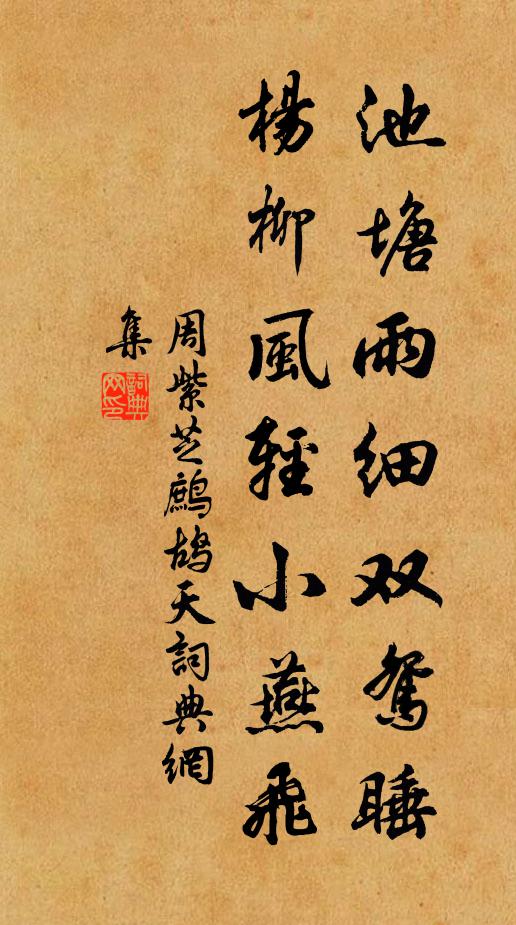 池塘雨细双鸳睡
楊柳風輕小燕飛
周紫芝鷓鴣天詞典網
集
詞典
网印